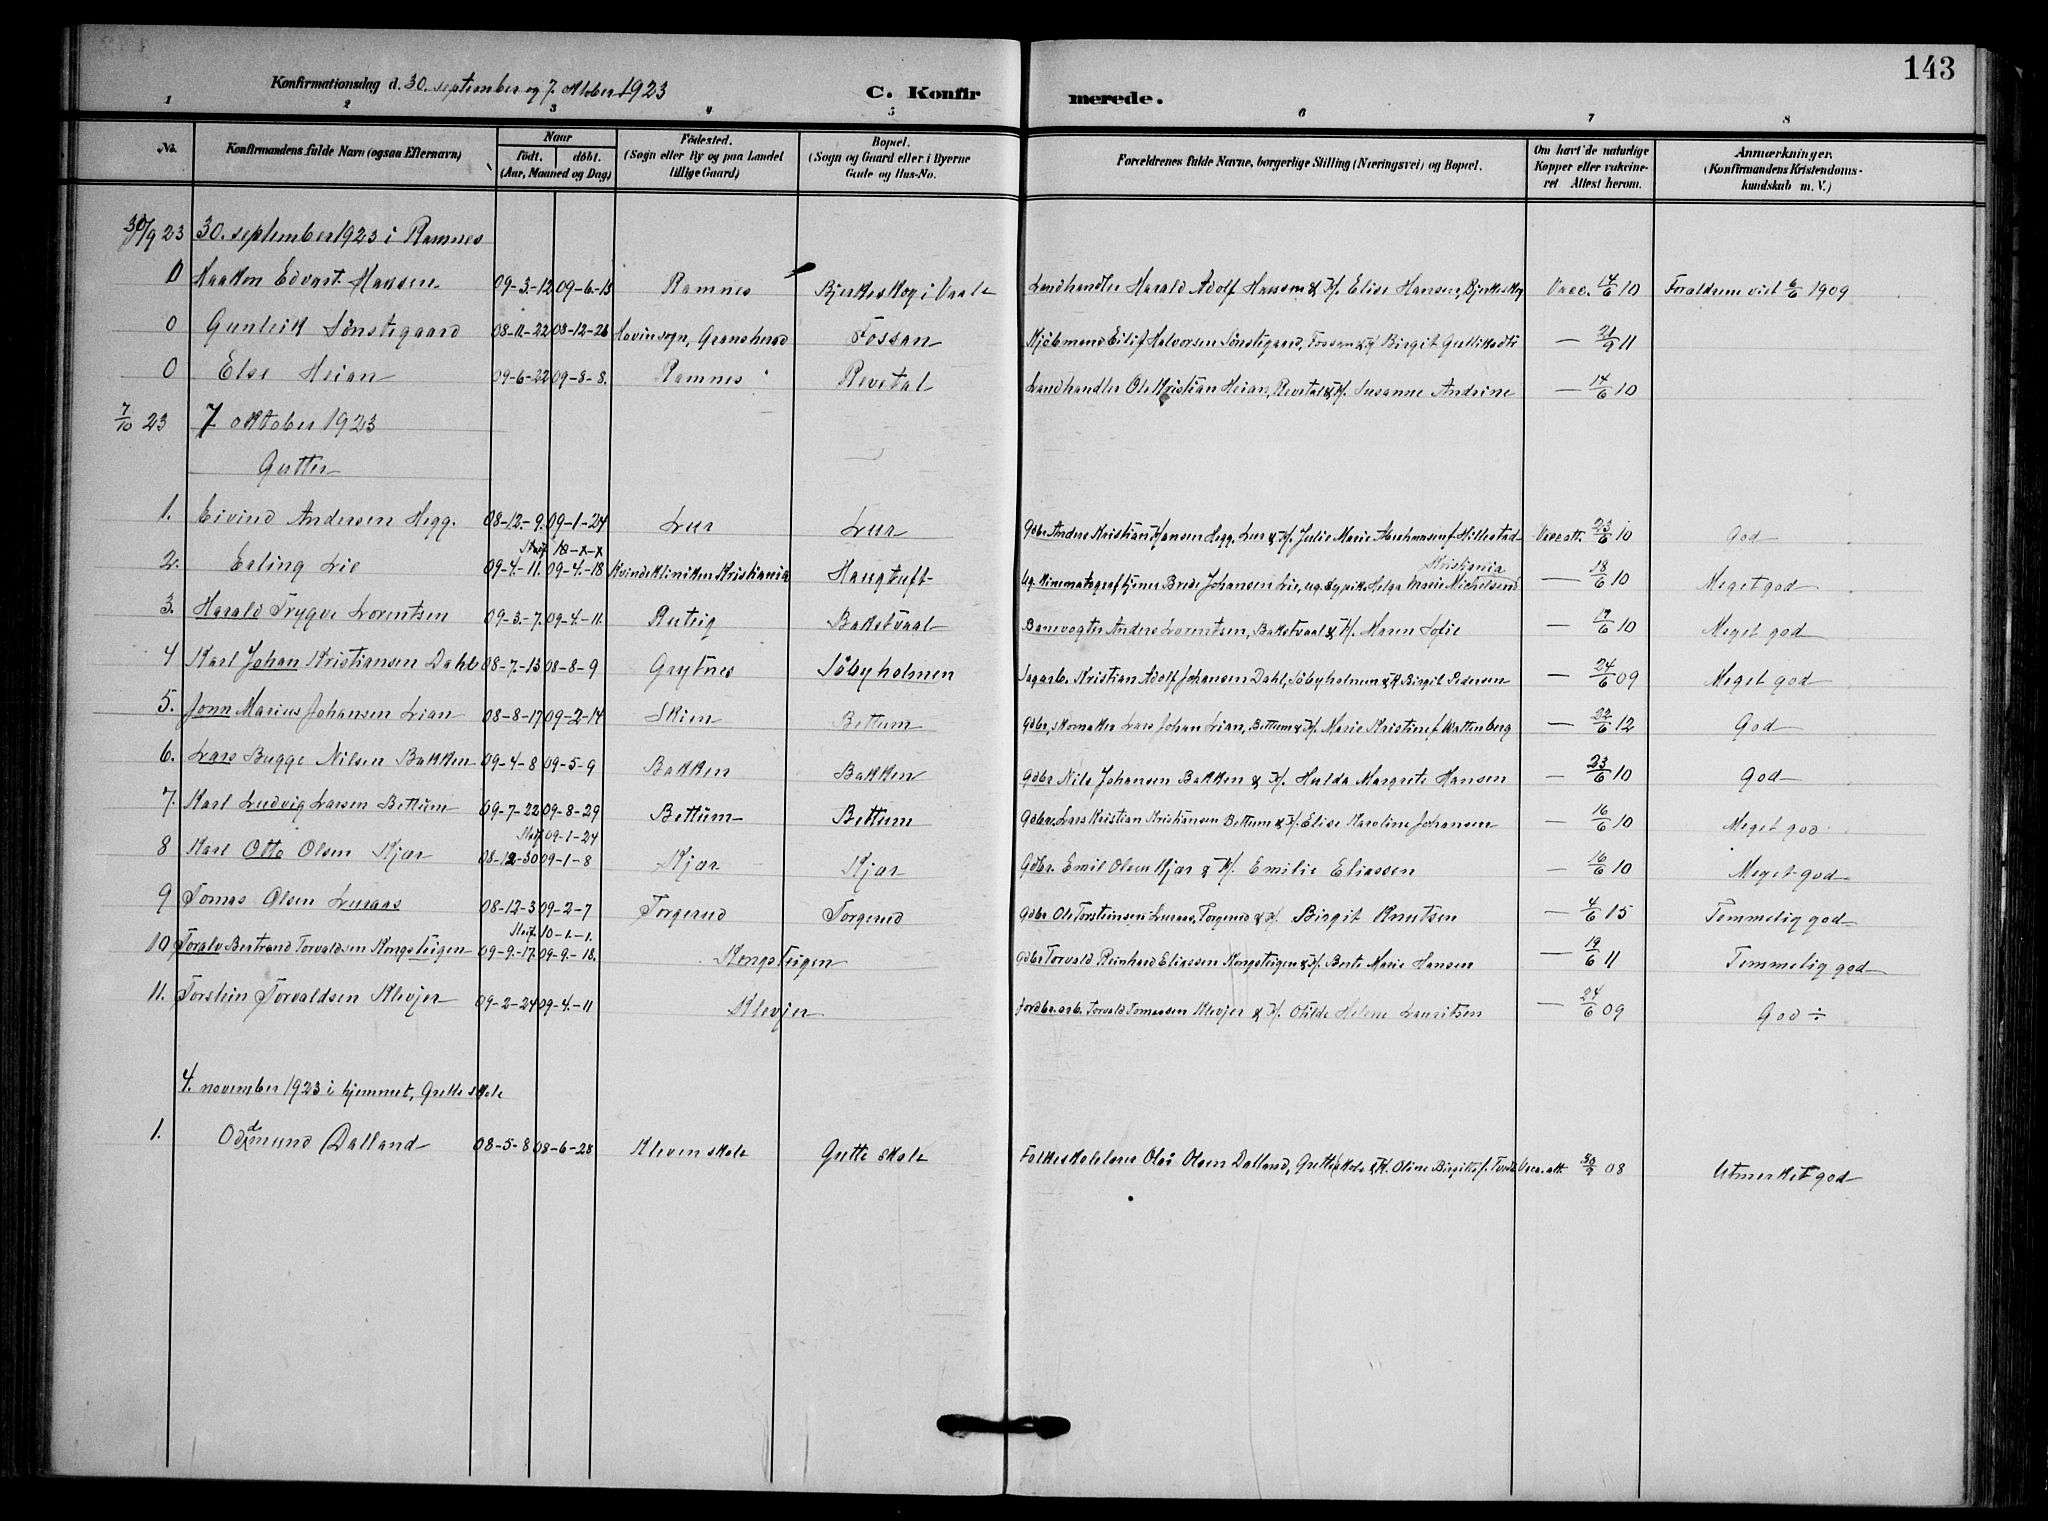 143
Konfirmationsdag d. 30. september og 7. oktober 1923
C. Konfirmerede.
1 2 3 4 5 6 7 8
No. Konfirmandens fulde Navn (ogsaa Efternavn) Naar født. døbt. (Aar, Maaned og Dag) Fødested. (Sogn eller By og paa Landet tillige Gaard) Bopæl. (Sogn og Gaard eller i Byerne Gade og Hus-No. Forældrenes fulde Navne, borgerlige Stilling (Næringsvei) og Bopæl. Om havt de naturlige Kopper eller vakcineret Attest herom. Anmærkninger. (Konfirmandens Kristendomskundskab m. V.)
30/9 23 30. september 1923 i Ramnes
0 Haakon Edvart Hansen 09-3-12 09-6-13 Ramnes Bjerkeskog i Vaale Landhandler Harald Adolf Hansen & H. Elise Hansen, Bjerkeskog Vacc. 14/6 10 Forældrene viet 6/6 1909
0 Gunleik Sønstegaard 08-11-22 08-12-26 Hovin sogn, Gransherad Fossan Kjøbmand Eilif Halvorsen Sønstegaard, Fossan & H. Birgit — 21/9 11
0 Else Heian 09-6-22 09-8-8. Ramnes Revetal Landhandler Ole Kristian Heian, Revetal & H. Susanne Andrine — 14/6 10
7/10 23 7 oktober 1923
Gutter
1. Eivind Andersen Hegg. 08-12-9. 09-1-24 Lur Lur Gdbr. Anders Kristian Hansen Hegg, Lur & H. Julie Marie f. Hillestad Vacc att. 23/6 10 God
Stadf. 10-x-x Kristiania
2. Erling Lie 09-4-11. 09-4-18 Kvindekliniken Kristiania Haugtuft Ug. Kinematograftjener Brede Johansen Lie, ug. Helga Marie Michelsend — 18/6 10 Meget god
3. Harald Trygve Lorentsen 09-3-7. 09-4-11. Rutsig Bakstvaal Banevogter Anders Lorentsen, Bakstvaal & H. Maren Sofie — 17/6 10 Meget god
4 Karl Johan Kristiansen Dahl 08-7-13 08-8-9 Grytnes Søbyholmen Sagarb. Kristian Adolf Johansen Dahl, Søbyholmen & H. Birgit Pedersen — 24/6 09 Meget god
5. Jonn Marius Johansen Lian 08-8-17 09-2-14 Skim Bettum Gdbr, skomaker Lars Johan Lian, Bettum & H. Marie Kristine f Wattenberg — 22/6 12 God
6. Lars Bugge Nilsen Bakken 09-4-8 09-5-9 Bakken Bakken Gdbr Nils Johansen Bakken & H. Hulda Margrete Hansen — 23/6 10 God
7. Karl Ludvig Larsen Bettum 09-7-22 09-8-29 Bettum Bettum Gdbr. Lars Kristian Kristiansen Bettum & H. Elise Karoline Johansen — 16/6 10 Meget god
Stadf. 09-1-24
8 Karl Otto Olsen Kjær 08-12-30 09-1-8 Kjær Kjær Gdbr. Emil Olsen Kjær & H. Emilie Eliassen — 16/6 10 Meget god
9 Tomas Olsen Luraas 08-12-3 09-2-7 Torgerud Torgerud Gdbr Ole Torsteinsen Luraas, Torgerud & H. Birgit Knutsen — 4/6 15 Temmelig god
Stadf. 10-1-1.
10 Toralv Bertrand Torvaldsen Kongsteigen 09-9-17. 09-9-18. Kongsteigen Gdbr Torvald Reinhard Eliassen Kongsteigen & H. Berte Marie Hansen — 19/6 11 Temmelig god
11. Torstein Torvaldsen Klevjer 09-2-24 09-4-11 Klevjer Jordbr.arb. Torvald Tomassen Klevjer & H. Otilde Helene Lauritsen — 24/6 09 God ÷
4. november 1923 i hjemmet, Grette skole
1. Oddmund Dalland 08-5-8 08-6-28 Kleven skole Grette skole Folkeskolelærer Olai Olsen Dalland, Grette skole & H. Oline Birgitte f. Vacc. att 30/9 08 Utmerket god